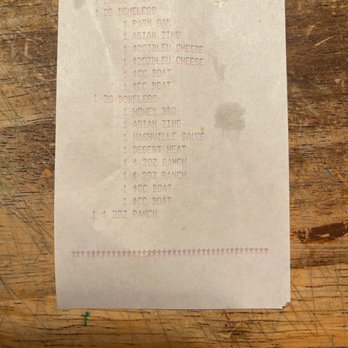 1 30 BONELESS
1 PARM GAR
1 ASIAN ZING
1 $2OZBLEU CHEESE
1 $2OZBLEU CHEESE
1 $CC BOAT
1 $CC BOAT
1 30 BONELESS
1 HONEY BBQ
1 ASIAN ZING
1 NASHVILLE SAUCE
1 DESERT HEAT
1 $ 2OZ RANCH
1 $ 2OZ RANCH
1 $CC BOAT
1 $CC BOAT
1 $ 2OZ RANCH